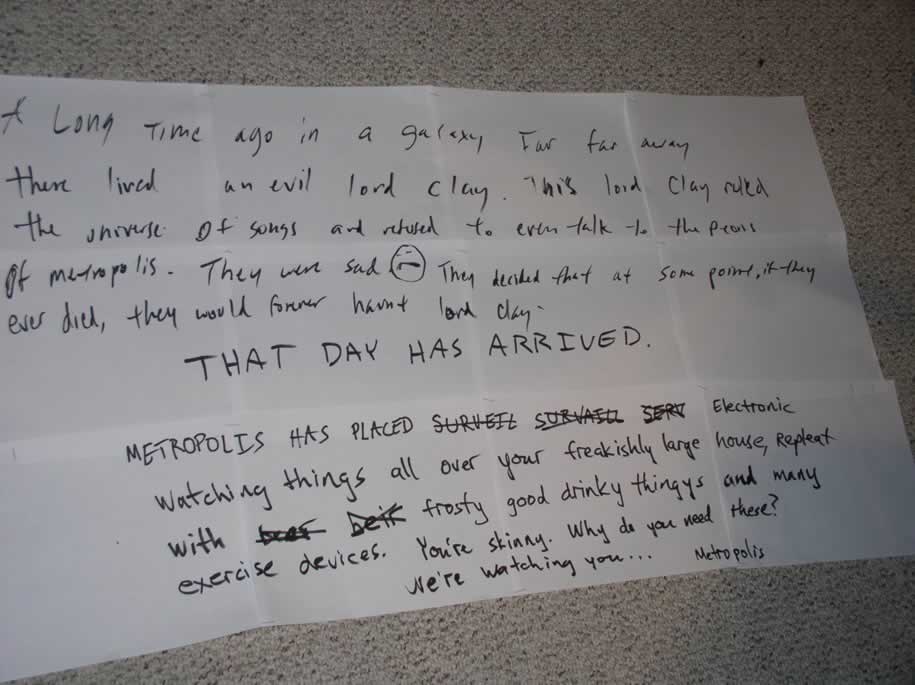 A Long Time ago in a galaxy Far far away
there lived an evil lord clay. This lord Clay ruled
the universe Of songs and refused to even talk to the peons
Of metropolis. They were sad ☹ They decided that at some point, if they
ever died, they would forever haunt lord clay.
THAT DAY HAS ARRIVED.
METROPOLIS HAS PLACED SURVEIL SURVAILL SERV Electronic
Watching things all over your freakishly large house, Repleat
with beer beir frosty good drinky thingys and many
exercise devices. You're skinny. Why do you need these?
We're watching you... Metropolis